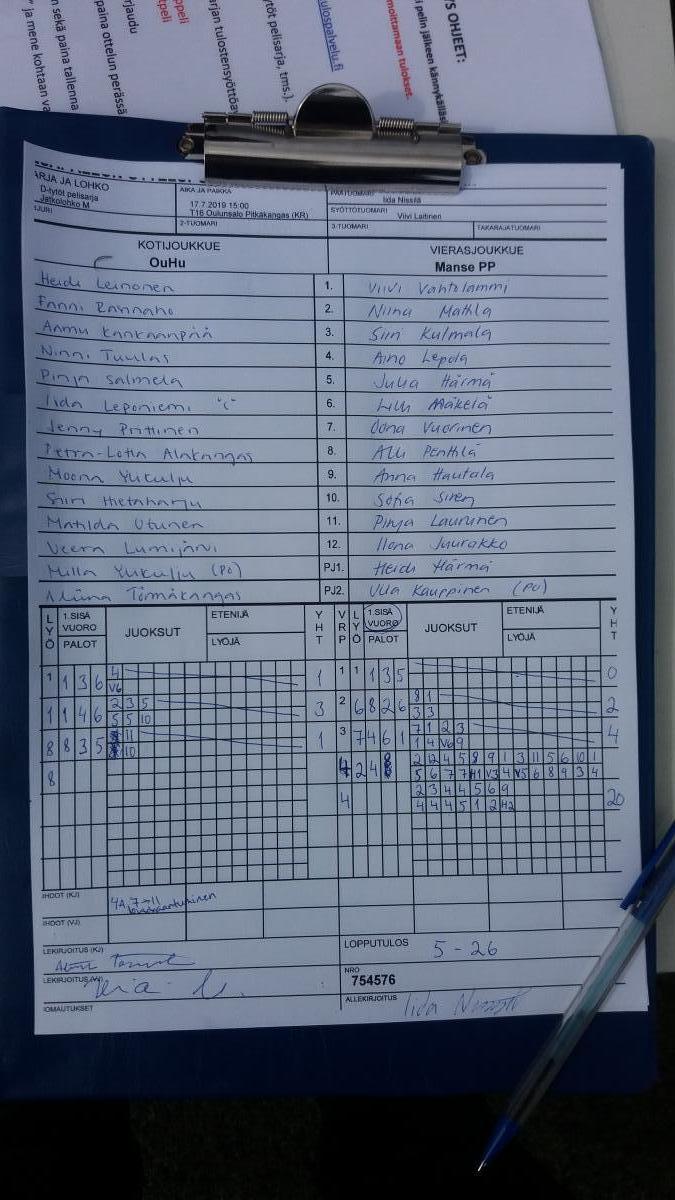 YS OHJEET:
i pelin jälkeen kännykälläs
moittamaan tulokset.
tulospalvelu.fi
ytöt pelisarja, tms.).
arjan tulostensyöttöav
ppeli
tpeli
rjaudu
paina ottelun perässä
n sekä paina tallenna
ja mene kohtaan va
ARJA JA LOHKO
D-tytöt pelisarja
Jatkolohko M
AIKA JA PAIKKA
17.7.2019 15:00
T16 Oulunsalo Pitkäkangas (KR)
PÄÄTUOMARI
Iida Nissilä
SYÖTTÖTUOMARI
Viivi Laitinen
2-TUOMARI
3-TUOMARI
TAKARAJATUOMARI
KOTIJOUKKUE
OuHu
VIERASJOUKKUE
Manse PP
Heidi Leinonen 1. Viivi Vahtolammi
Fanni Rannaho 2. Niina Mathla
Aamu Kankaanpää 3. Siiri Kulmala
Ninni Tuulas 4. Aino Lepola
Pinja Salmela 5. Julia Härmä
Iida Leponiemi "C" 6. Lilli Mäkelä
Jenny Prittinen 7. Oona Vuorinen
Petra-Lotta Alakangas 8. Alli Penttilä
Moona Yukulju 9. Anna Hautala
Siiri Hietaharju 10. Sofia Siren
Matilda Utunen 11. Pinja Laurunen
Veera Lumijärvi 12. Ilona Juurakko
Milla Yukulju (PU) PJ1. Heidi Härmä
Törmäkangas PJ2. Ulla Kauppinen (PU)
LYÖ 1.SISÄ VUORO PALOT JUOKSUT ETENIJÄ LYÖJÄ YHT VRP LYÖ 1.SISÄ VUORO PALOT JUOKSUT ETENIJÄ LYÖJÄ YHT
1 1 3 6 4 1 1 1 1 3 5 0
V6
1 1 4 6 2 3 5 3 2 6 8 2 6 8 1 2
5 5 10 3 3
8 8 3 5 11 1 3 7 4 6 1 7 1 2 3 4
10 1 4 V6 9
8 4 2 4 8 2 12 4 5 8 9 1 3 11 5 6 10 1
5 6 7 7 H1 V3 4 V5 6 8 9 3 4
4 2 3 4 4 5 6 9 20
4 4 4 5 1 2 H2
IHDOT (KJ)
4A, 7→11
IHDOT (VJ)
LEKIRJOITUS (KJ)
LOPPUTULOS 5 - 26
LEKIRJOITUS (VJ)
NRO
754576
OMAUTUKSET
ALLEKIRJOITUS
Iida Nissilä